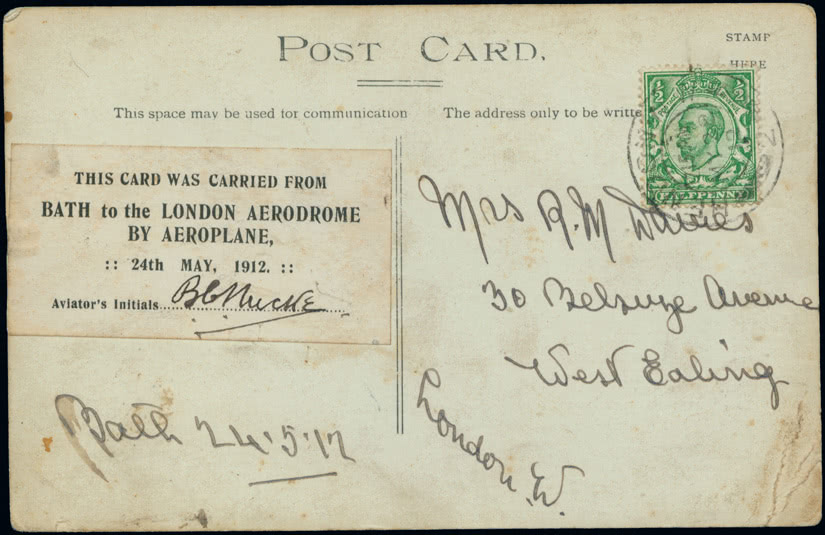 POST CARD.
STAMP
HERE
This space may be used for communication
The address only to be writte
½ ½
POSTAGE
HALFPENNY
THIS CARD WAS CARRIED FROM
BATH to the LONDON AERODROME
BY AEROPLANE,
:: 24th MAY, 1912. ::
Aviator's Initials B C Hucks
Bath 24.5.12
Mrs R. M Davies
30 Belsize Avenue
West Ealing
London. W.